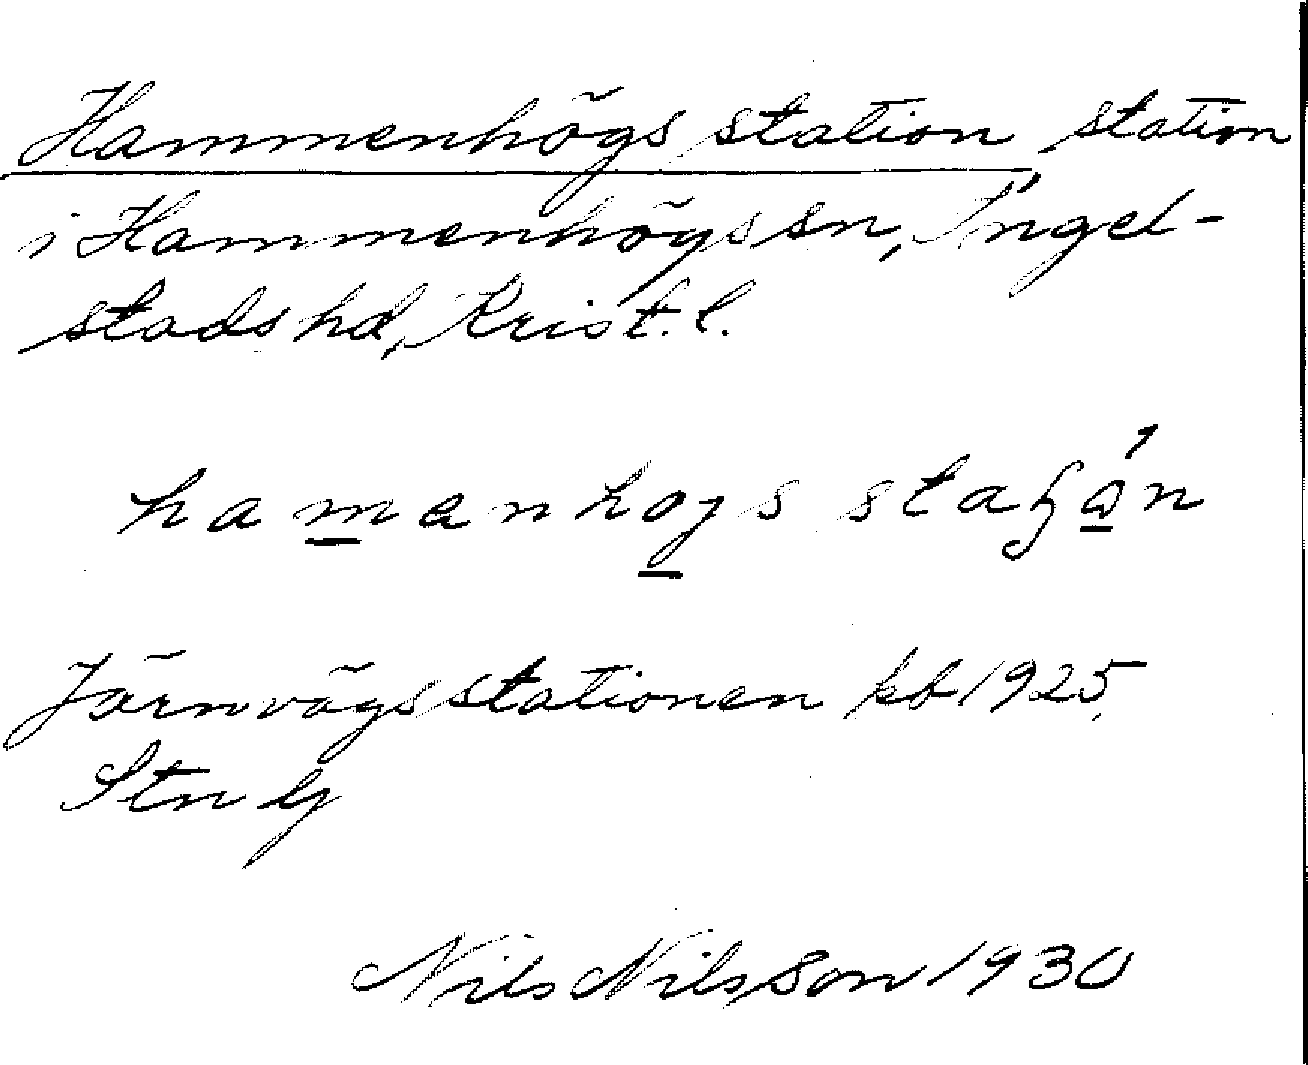 Hammenhögs station station
i Hammenhögs sn, Ingel-
stads hd, Krist. l.
Järnvägsstationen kb 1925,
Stn
Nils Nilsson 1930